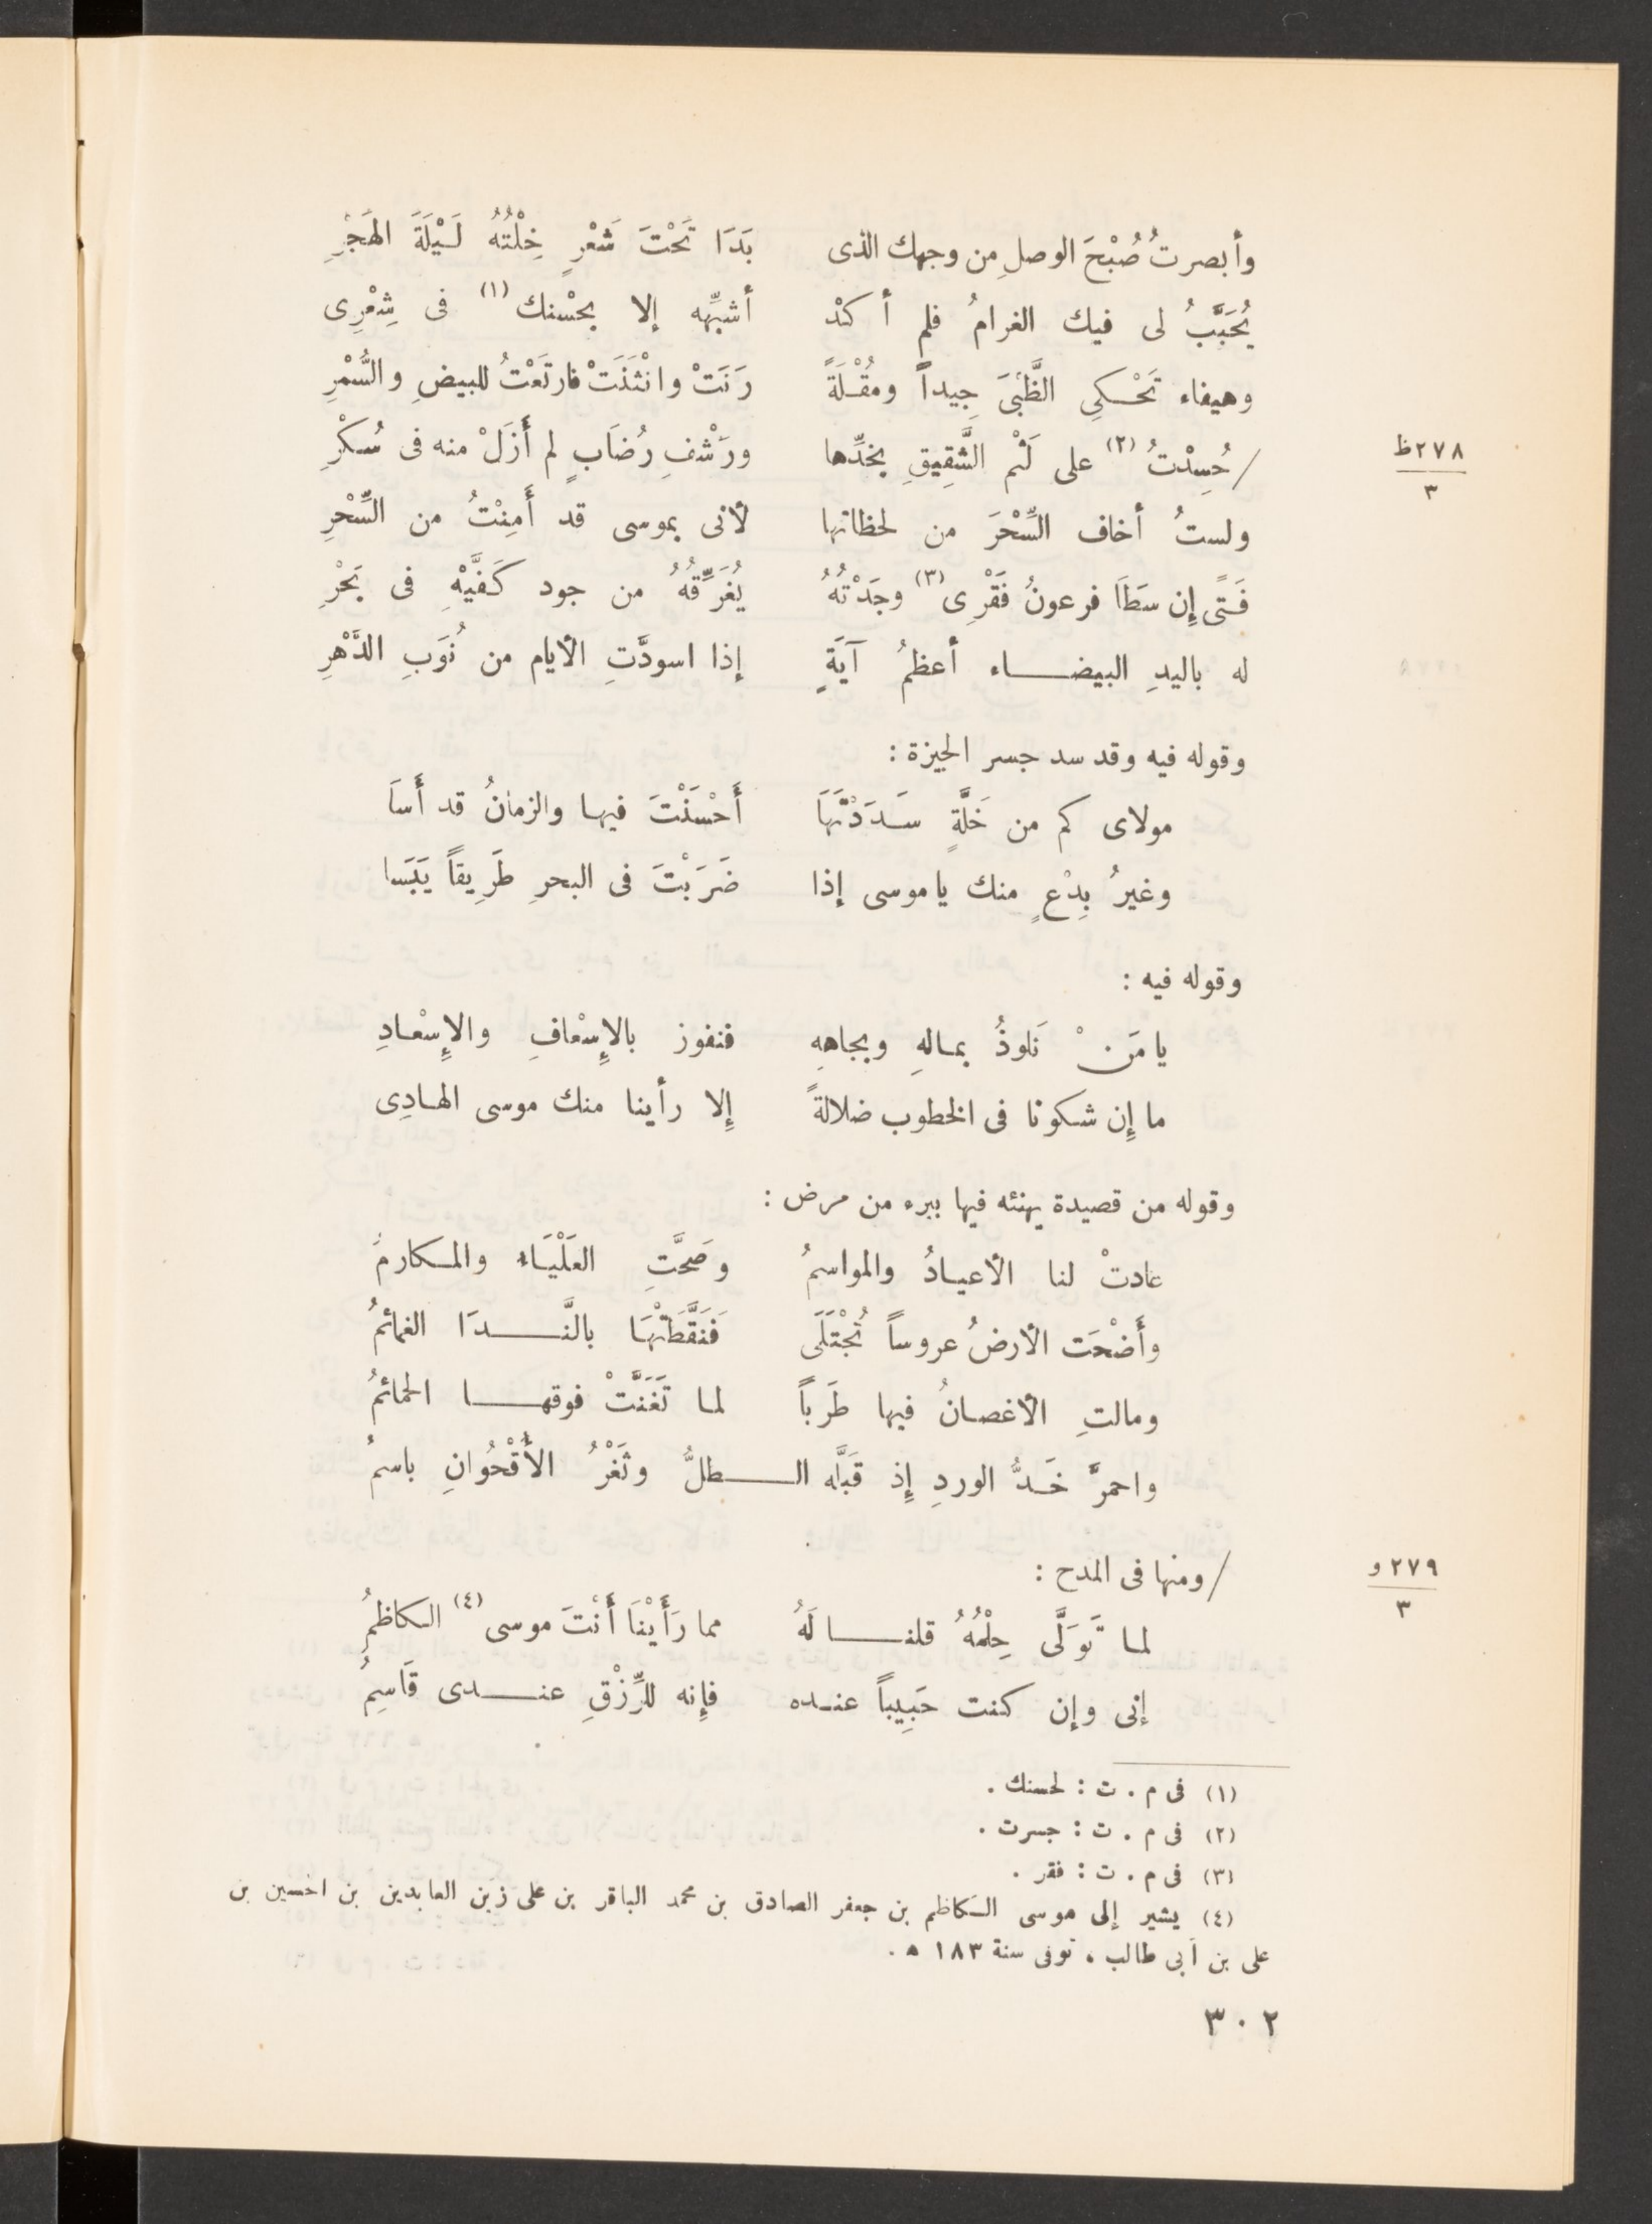 وأبصرتُ صُبْحَ الوصلِ من وجهك الذى بَدَا تَحْتَ شَعْرٍ خِلْتُهُ لَيْلَةَ الهَجْرِ
يُحَبَّبُ لى فيك الغرامُ فلم أكدْ أشبِّهه إلا بحسْنك (١) فى شِعْرِى
وهيفاء تَحْكِى الظَّبْىَ جِيداً ومُقْلَةً رَنَتْ وانْثَنَتْ فارتَعْتُ للبيضِ والسُّمْرِ
٢٧٨ظ
٣
/ حُسِدْتُ (٢) على لَثْم الشَّقِيقِ بخدِّها ورَشْفِ رُضَابٍ لم أَزَلْ منه فى سُكْرِ
ولستُ أخاف السِّحْرَ من لحظاتها لأنى بموسى قد أَمِنْتُ من السِّحْرِ
فَتًى إِن سَطَا فرعونُ فَقْرِى (٣) وجَدْتُهُ يُغَرِّقُهُ من جود كَفَّيْهِ فى بَحْرِ
له باليدِ البيضاء أعظمُ آيَةٍ إذا اسودَّتِ الأيام من نُوَبِ الدَّهْرِ
وقوله فيه وقد سد جسر الجيزة :
مولاى كم من خَلَّةٍ سَدَدْتَهَا أَحْسَنْتَ فيها والزمانُ قد أَسَا
وغيرُ بِدْعٍ منك ياموسى إذا ضَرَبْتَ فى البحرِ طَرِيقاً يَبَسا
وقوله فيه :
يا مَنْ نَلوذُ بمالهِ وبجاههِ فنفوز بالإِسْعافِ والإِسْعادِ
ما إِن شكونا فى الخطوب ضلالةً إِلا رأينا منك موسى الهادِى
وقوله من قصيدة يهنئه فيها ببرء من مرض :
عادتْ لنا الأعيادُ والمواسمُ وصَحَّتِ العَلْيَاء والمكارمُ
وأَضْحَت الأرضُ عروساً تُجْتَلَى فَنَقَّطَتْهَا بالنَّدَا الغمائمُ
ومالتِ الأغصانُ فيها طَرَباً لما تَغَنَّتْ فوقها الحمائمُ
واحمرَّ خَدُّ الوردِ إِذ قَبَّله الطلُّ وثَغْرُ الأُقْحُوانِ باسمُ
٢٧٩و
٣
/ ومنها فى المدح :
لما تَوَلَّى حِلْمُهُ قلنا لَهُ مما رَأَيْنَا أَنْتَ موسى (٤) الكاظمُ
إنى وإن كنت حَبِيباً عنده فإِنه للرِّزْقِ عندى قَاسِمُ
(١) فى م . ت : لحسنك .
(٢) فى م . ت : جسرت .
(٣) فى م . ت : فقر .
(٤) يشير إلى موسى الكاظم بن جعفر الصادق بن محمد الباقر بن على زين العابدين بن الحسين بن
على بن أبى طالب ، توفى سنة ١٨٣ ه .
٣٠٢